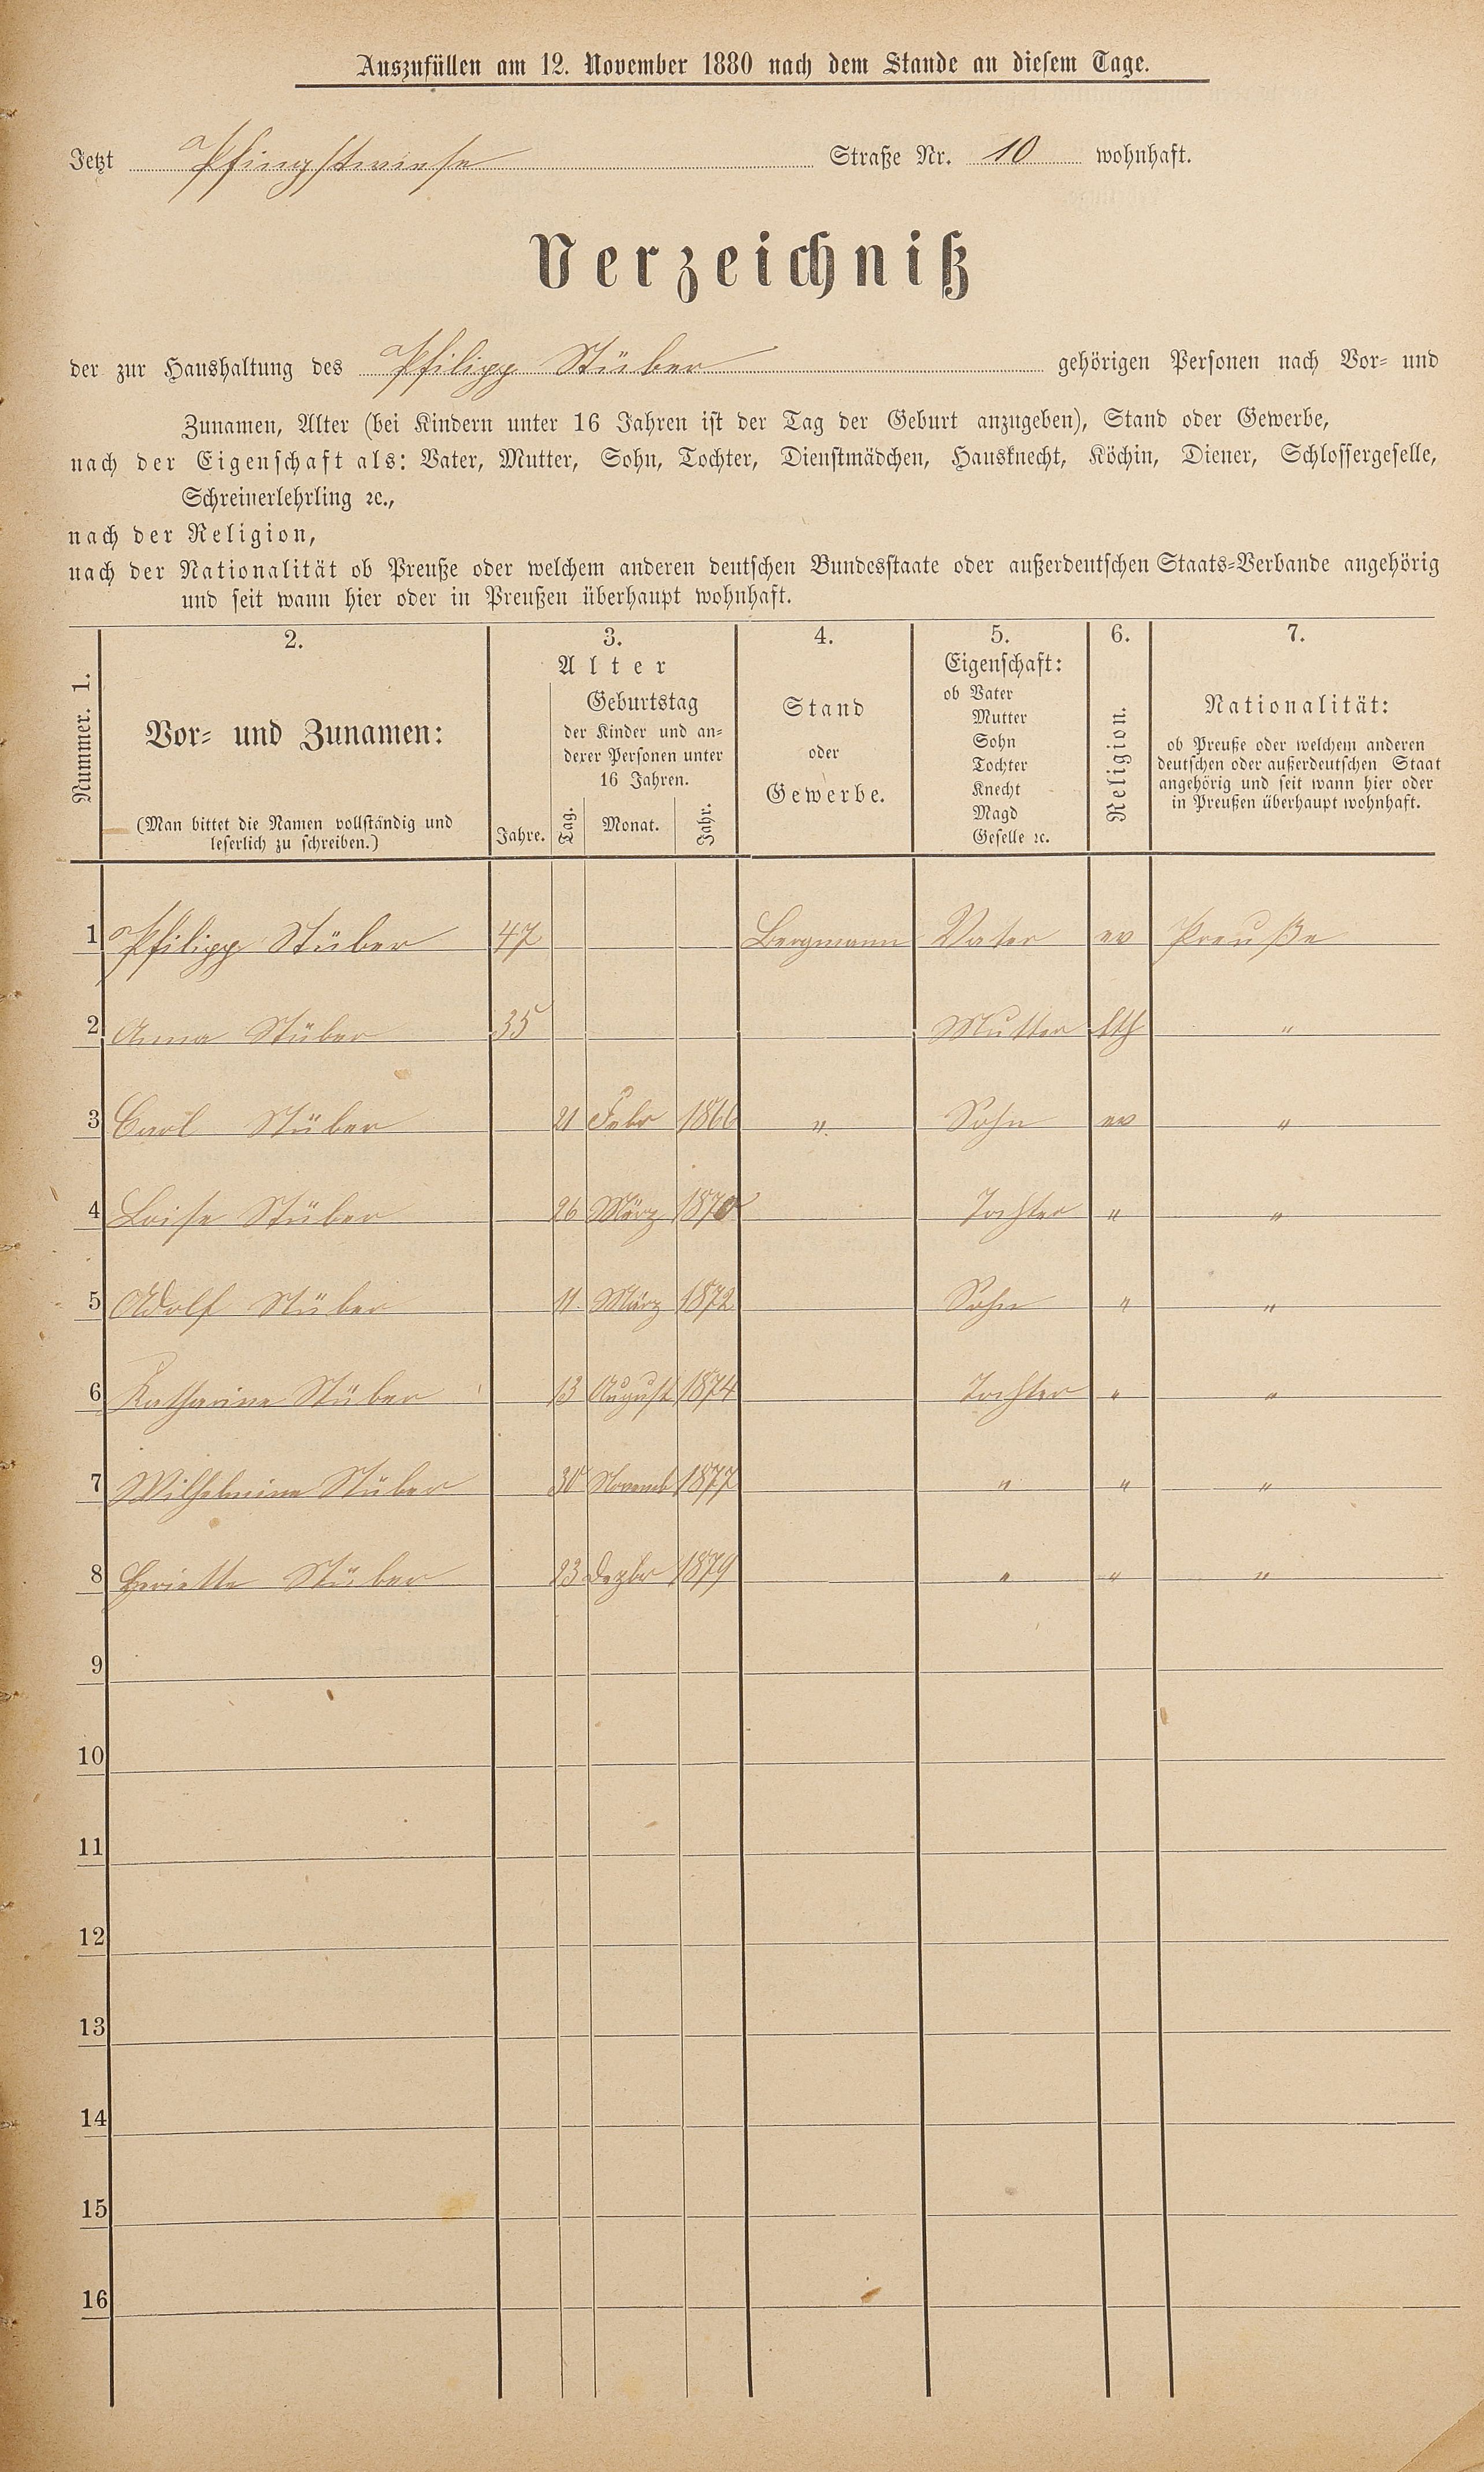 Auszufüllen am 12. November 1880 nach dem Stande an diesem Tage.
Jetzt Pfingstwiese Straße Nr. 10 wohnhaft.
Verzeichniß
der zur Haushaltung des Philipp Stüber gehörigen Personen nach Vor- und
Zunamen, Alter (bei Kindern unter 16 Jahren ist der Tag der Geburt anzugeben), Stand oder Gewerbe,
nach der Eigenschaft als: Vater, Mutter, Sohn, Tochter, Dienstmädchen, Hausknecht, Köchin, Diener, Schlossergeselle,
Schreinerlehrling ꝛc.,
nach der Religion,
nach der Nationalität ob Preuße oder welchem anderen deutschen Bundesstaate oder außerdeutschen Staats-Verbande angehörig
und seit wann hier oder in Preußen überhaupt wohnhaft.
Nummer. 1.
2.
Vor- und Zunamen:
(Man bittet die Namen vollständig und
leserlich zu schreiben.)
3.
Alter
Jahre.
Geburtstag
der Kinder und an-
derer Personen unter
16 Jahren.
Tag. Monat. Jahr.
4.
Stand
oder
Gewerbe.
5.
Eigenschaft:
ob Vater
Mutter
Sohn
Tochter
Knecht
Magd
Geselle ꝛc.
6.
Religion.
7.
Nationalität:
ob Preuße oder welchem anderen
deutschen oder außerdeutschen Staat
angehörig und seit wann hier oder
in Preußen überhaupt wohnhaft.
1 Philipp Stüber 47 Bergmann Vater ev Preuße
2 Anna Stüber 35 Mutter kth "
3 Carl Stüber 21 Febr 1866 " Sohn ev "
4 Loise Stüber 26 März 1870 Tochter " "
5 Adolf Stüber 11. März 1872 Sohn " "
6 Katharine Stüber 13 August 1874 Tochter " "
7 Wilhelmine Stüber 30 Novemb 1877 " " "
8 Heriette Stüber 23 Dezbr 1879 " " "
9
10
11
12
13
14
15
16